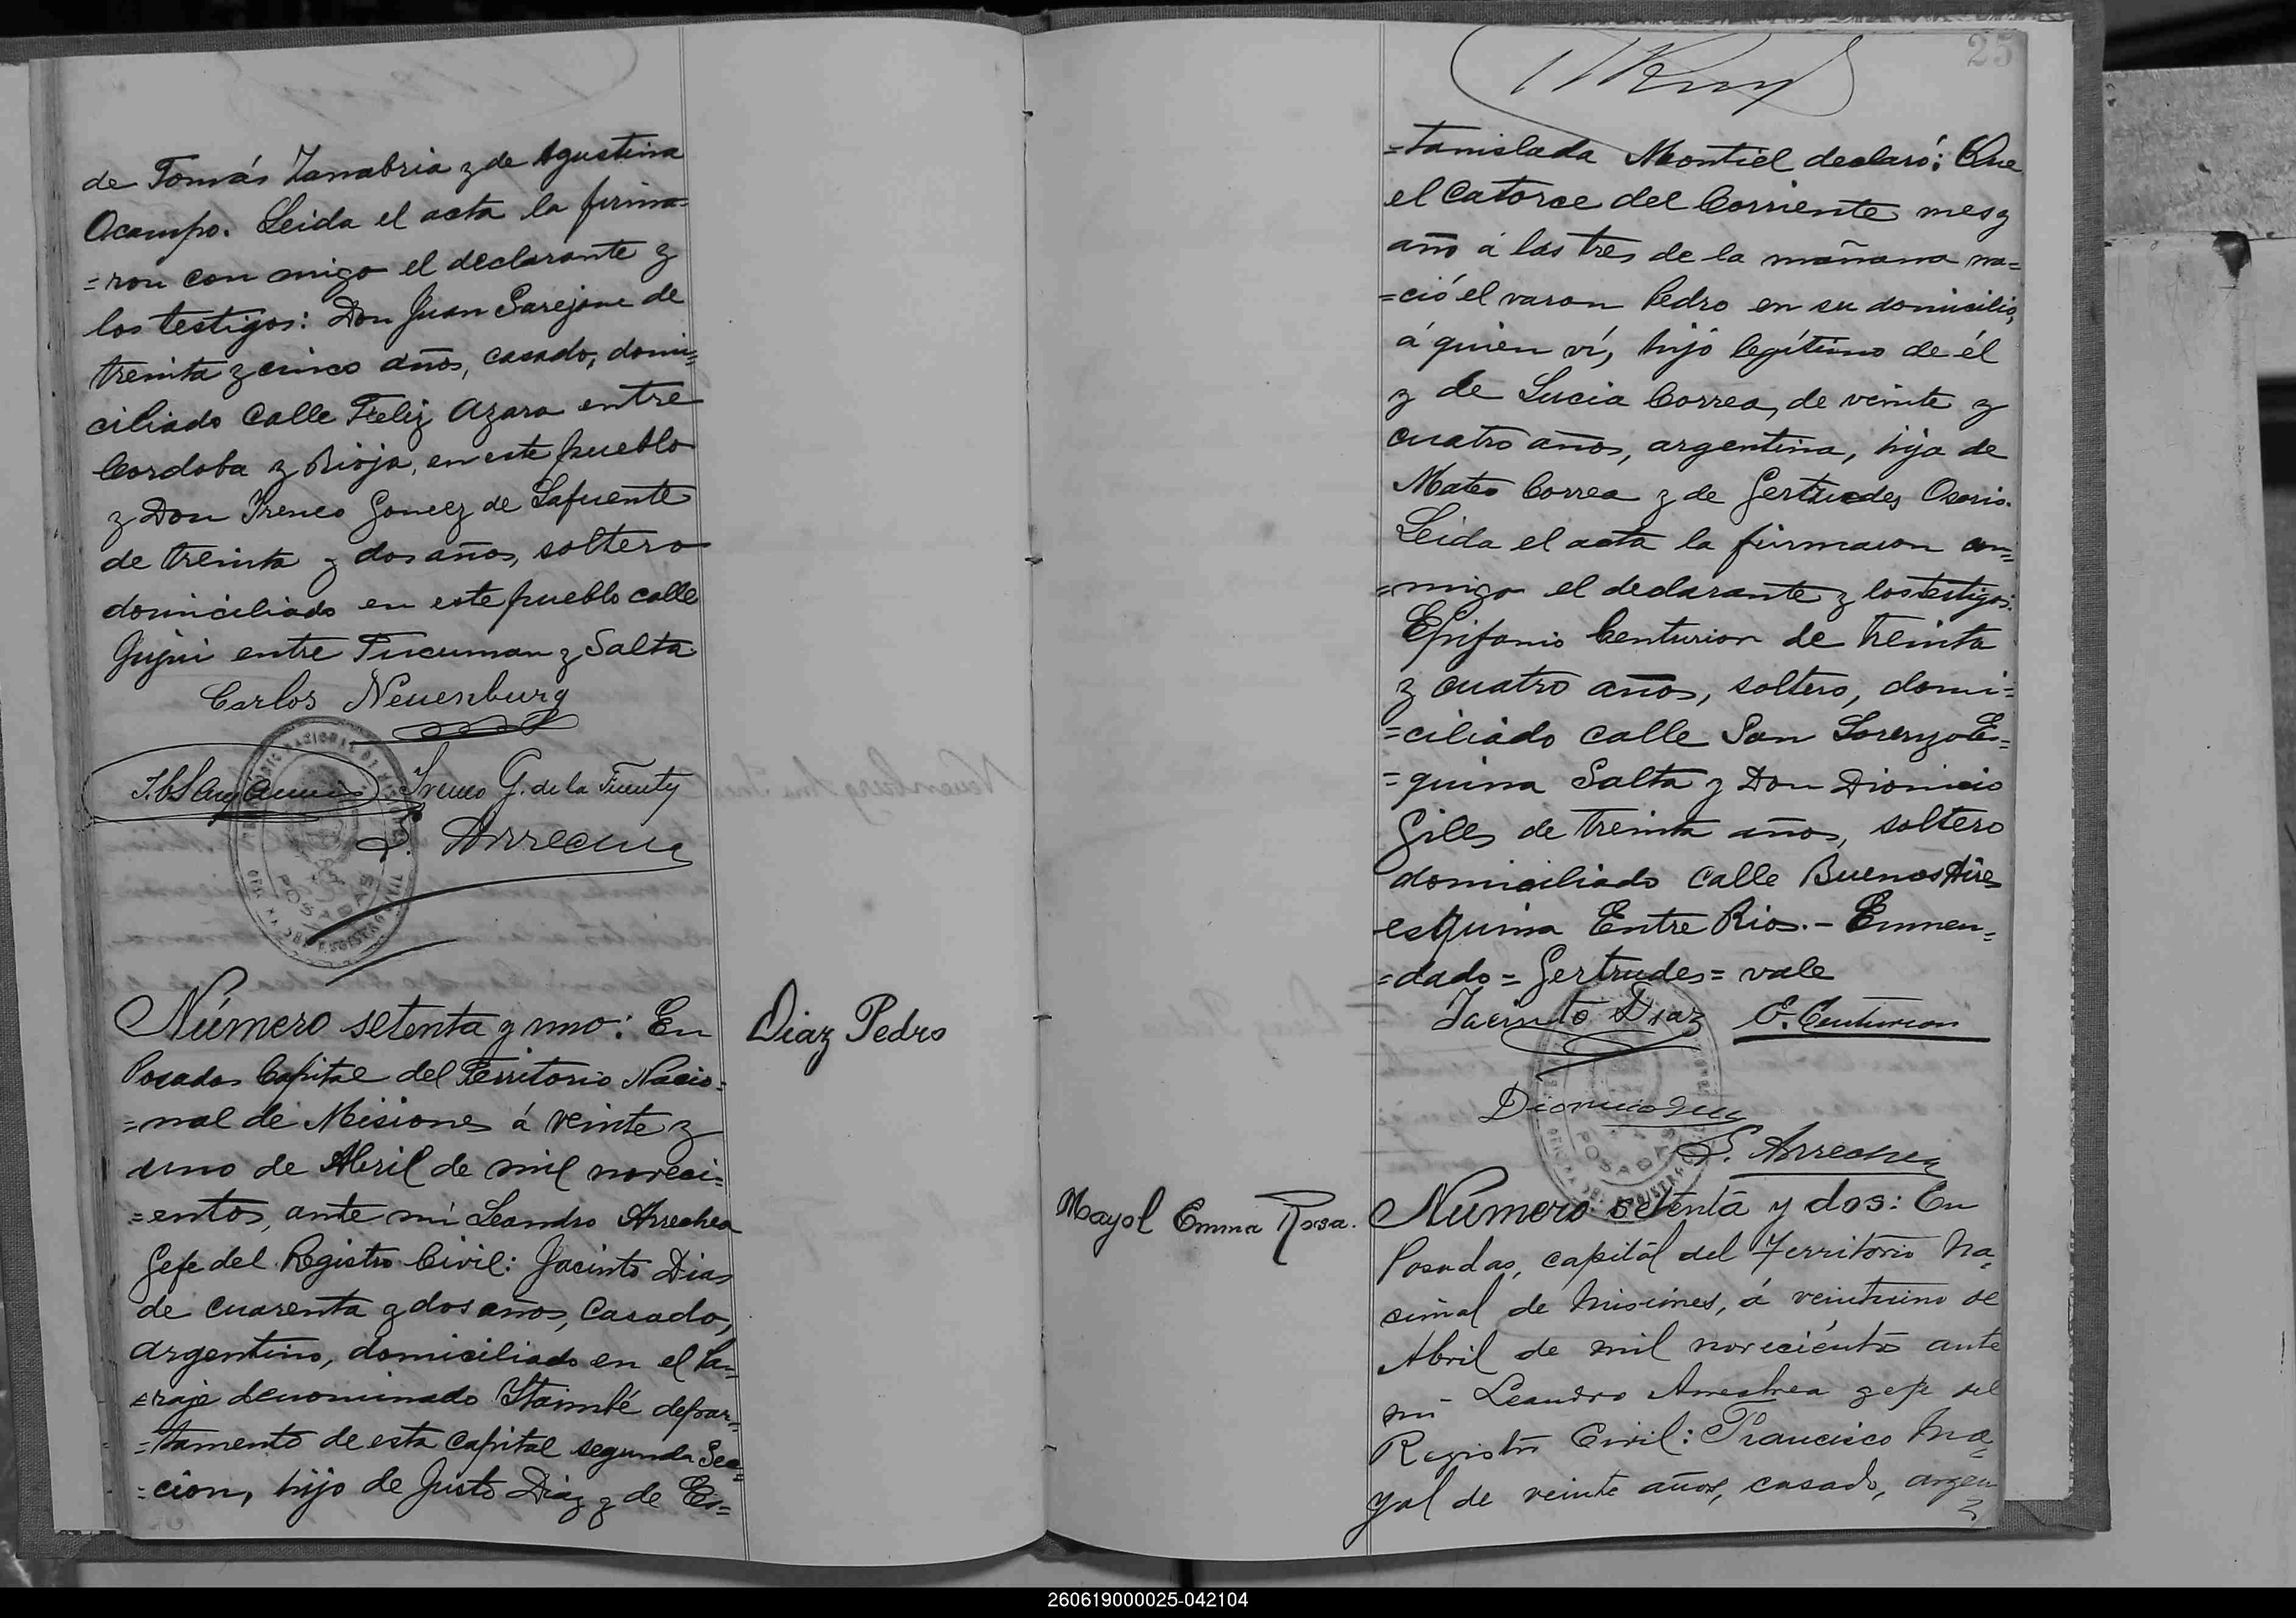 de Tomás Zanabria y de Agustina
Ocampo. Leida el acta la firma=
=ron con migo el declarante y
los testigos: Don Juan Sarejane de
treinta y cinco años, casado, domi=
ciliado Calle Feliz Azara entre
Cordoba y Rioja, en este pueblo
y Don Ireneo Gomez de Lafuente
de treinta y dos años, soltero
domiciliado en este pueblo calle
Jujui entre Tucuman y Salta.
Carlos Neuenburg
Ireneo G. de la Fuente
L. Arrechea
POSADAS
Número setenta y uno: En
Posadas Capital del Territorio Nacio=
=nal de Misiones á veinte y
uno de Abril de mil noveci=
=entos, ante mi Leandro Arrechea
Gefe del Registro Civil: Jacinto Dias
de cuarenta y dos años, Casado,
argentino, domiciliado en el Pa=
=raje denominado Itaimbé depar=
=tamento de esta Capital segunda Sec=
=cion, hijo de Justo Diaz y de Es=
Diaz Pedro
25
=tanislada Montiel declaró: Que
el Catorce del Corriente mes y
año á las tres de la mañana na=
=ció el varon Pedro en su domicilio,
á quien ví, hijo legítimo de él
y de Lucia Correa, de veinte y
cuatro años, argentina, hija de
Mateo Correa y de Gertrudes Osorio.
Leida el acta la firmaron con=
=migo el declarante y los testigos:
Epifanio Centurion de treinta
y cuatro años, soltero, domi=
=ciliado calle San Lorenzo Es=
=quina Salta y Don Dionicio
Giles de treinta años, soltero
domiciliado calle Buenos Aires
esquina Entre Rios.- Enmen=
=dado = Gertrudes = vale
Jacinto Diaz E. Centurion
L. Arrechea
POSADAS
Mayol Emma Rosa.
Número setenta y dos: En
Posadas, capital del Territorio Na=
cional de Misiones, á veintiuno de
Abril de mil novecientos ante
mi Leandro Arrechea gefe del
Registro Civil: Francisco Ma=
yol de veinte años, casado, argen
260619000025-042104